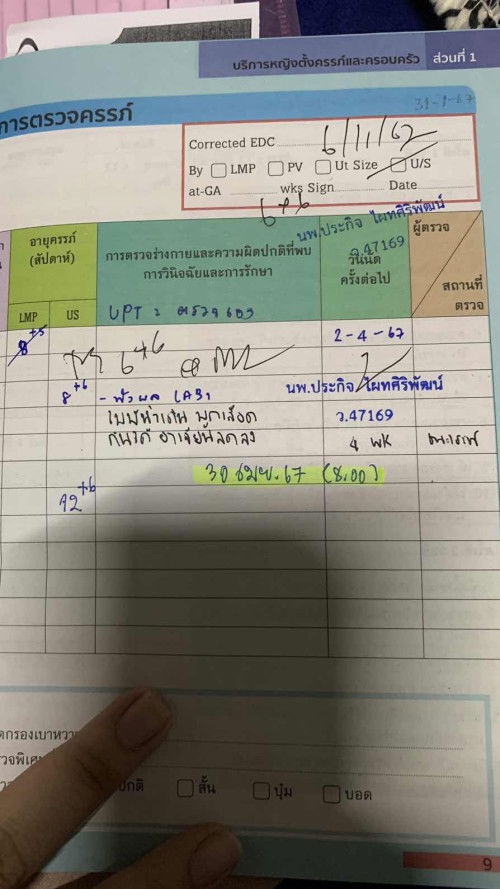 บริการหญิงตั้งครรภ์และครอบครัว ส่วนที่ 1
31-1-67
การตรวจครรภ์
Corrected EDC 6/11/67
By LMP PV Ut Size U/S
at-GA wks Sign Date
6+6
นพ.ประกิจ ไผทศิริพัฒน์
ว.47169
อายุครรภ์
(สัปดาห์)
การตรวจร่างกายและความผิดปกติที่พบ
การวินิจฉัยและการรักษา
วันนัด
ครั้งต่อไป
ผู้ตรวจ
สถานที่
ตรวจ
LMP US
UPT :
8+5
2-4-67
6+6
8+6 - ฟังผล LAB1 นพ.ประกิจ ไผทศิริพัฒน์
ว.47169
กินได้ อาเจียนลดลง 4 wk
30 เมย.67 (8.00)
12+6
ปกติ สั้น บุ๋ม บอด
9